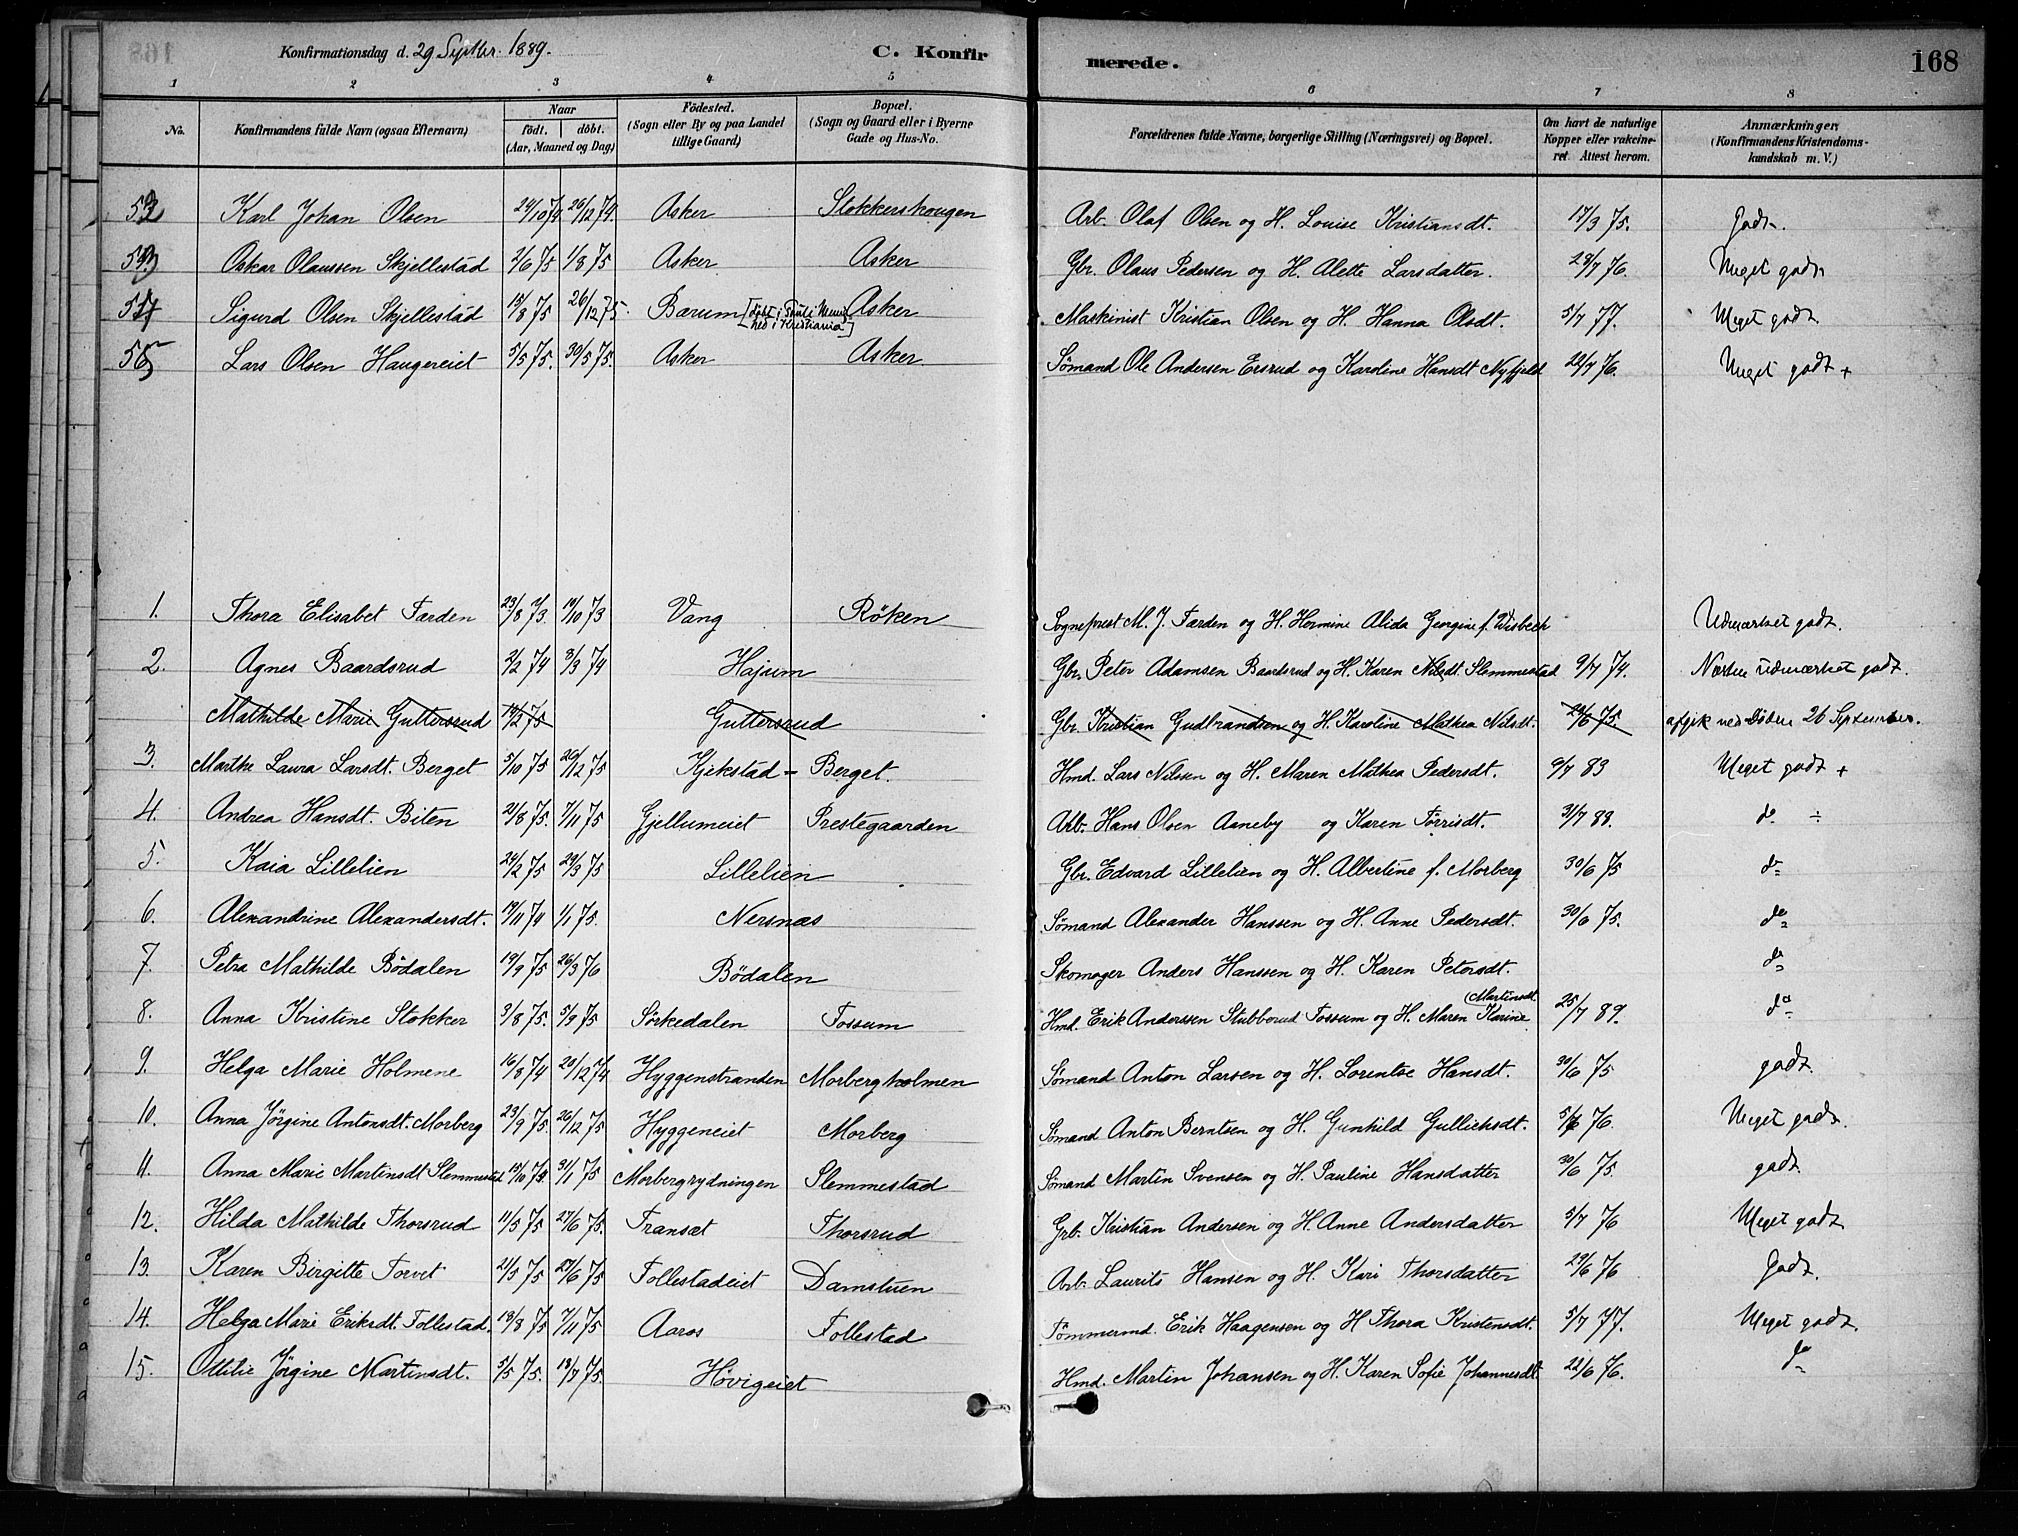 Konfirmationsdag d. 29 Septbr. 1889.
C. Konfirmerede.
168
1 2 3 4 5 6 7 8
No.
Konfirmandens fulde Navn (ogsaa Efternavn)
Naar
födt. döbt.
(Aar, Maaned og Dag)
Födested.
(Sogn eller By og paa Landet tillige Gaard)
Bopæl.
(Sogn og Gaard eller i Byerne Gade og Hus-No.
Forældrenes fulde Navne, borgerlige Stilling (Næringsvei) og Bopæl.
Om havt de naturlige Kopper eller vakcineret. Attest herom.
Anmærkninger.
(Konfirmandens Kristendomskundskab m. V.)
52 Karl Johan Olsen 24/10 74 26/12 74. Asker Stokkerskougen Arb. Olaf Olsen og H. Louise Kristiansdt. 17/3 75. Godt.
53 Oskar Olaussen Skjellestad 2/6 75 1/8 75 Asker Asker Gbr. Olaus Pedersen og H. Alette Larsdatter. 28/7 76. Meget godt
54 Sigurd Olsen Skjellestad 15/8 75 26/12 75. Bærum [döbt i Kristiania] Asker Maskinist Kristian Olsen og H. Hanna Olsdt. 5/7 77. Meget godt
55 Lars Olsen Haugereiet 5/5 75. 30/5 75. Asker Asker. Sømand Ole Andersen Ersrud og Karoline Hansdt Nyfjeld 22/7 76. Meget godt +
1. Thora Elisabet Færden 23/8 73. 19/10 73 Vang Röken Sogneprest M. J. Færden og H. Hermine Alida Georgine f. Wisbech Udmærket godt.
2. Agnes Baardsrud 2/2 74 8/3 74 Hajum Gbr. Peter Adamsen Baardsrud og H. Karen Nilsdt. Slemmestad 9/7 74. Næsten udmærket godt.
Mathilde Marie Guttersrud 19/2 75 Guttersrud Gbr. Kristian Gudbrandsen og H. Karoline Mathea Nilsdt. 24/6 75. afgik ved Döden 26 September.
3. Marthe Laura Larsdt. Berget 5/10 75 26/12 75 Kjekstad - Berget. Hmd. Lars Nilssen og H. Maren Mathea Pedersdt. 9/7 83 Meget godt +
4. Andrea Hansdt. Biten 21/8 75. 7/11 75 Gjellumeiet Prestegaarden Arb. Hans Olsen Aaneby og Karen Tørrisdt. 31/7 88. do ÷
5. Kaia Lillelien 24/2 75 29/3 75 Lillelien Gbr. Edvard Lillelien og H. Albertine f. Morberg 30/6 75 do
6. Alexandrine Alexandersdt. 19/11 74 1/1 75. Nersnæs Sømand Alexander Hanssen og H. Anne Pedersdt. 30/6 75. do
7. Petra Mathilde Bödalen 19/9 75 26/3 76 Bödalen Skomager Anders Hanssen og H. Karen Petersdt. do
8. Anna Kristine Stokker 3/8 75. 5/9 75 Sörkedalen Fossum Hmd. Erik Anderssen Stubberud Fossum og H. Maren Karine Martinsdt 25/7 89. do
9. Helga Marie Holmene 16/8 74 20/12 74 Hyggenstranden Morbergholmen Sømand Anton Larsen og H. Lorentse Hansdt. 30/6 75 godt.
10. Anna Jörgine Antonsdt. Morberg 23/9 75. 26/12 75 Hyggeneiet Morberg Sømand Anton Berntsen og H. Gunhild Gullichsdt. 5/7 76. Meget godt.
11. Anna Marie Martinsdt Slemmestad 15/10 74. 31/1 75 Morbergrydningen Slemmestad Sømand Martin Svensen og H. Pauline Hansdatter 30/6 75. godt.
12. Hilda Mathilde Thorsrud 11/5 75 27/6 75. Fransæt Thorsrud Grb. Kristian Andersen og H. Anne Andersdatter 5/7 76 Meget godt
13. Karen Birgitte Torvet 21/3 75 27/6 75 Follestadeiet Damstuen Arb. Laurits Hansen og H. Kari Thorsdatter 29/6 76 Godt.
14. Helga Marie Eriksdt. Follestad. 13/8 75 7/11 75 Aaros Follestad Tömmermd. Erik Haagensen og H Thora Kristensdt. 5/7 77. Meget godt.
15. Ottilie Jörgine Martinsdt. 5/5 75. 18/7 75. Hövigeiet Hmd. Martin Johansen og H. Karen Sofie Johannesdt 22/6 76. do